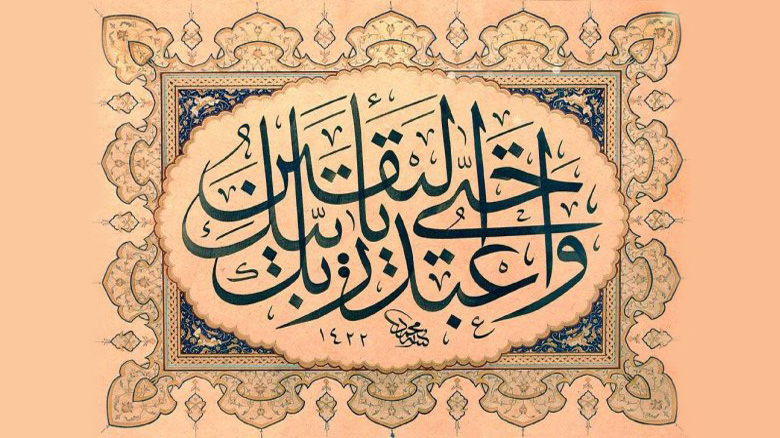 وَاعْبُدْ رَبَّكَ حَتَّى يَأْتِيَكَ الْيَقِينُ
١٤٢٢